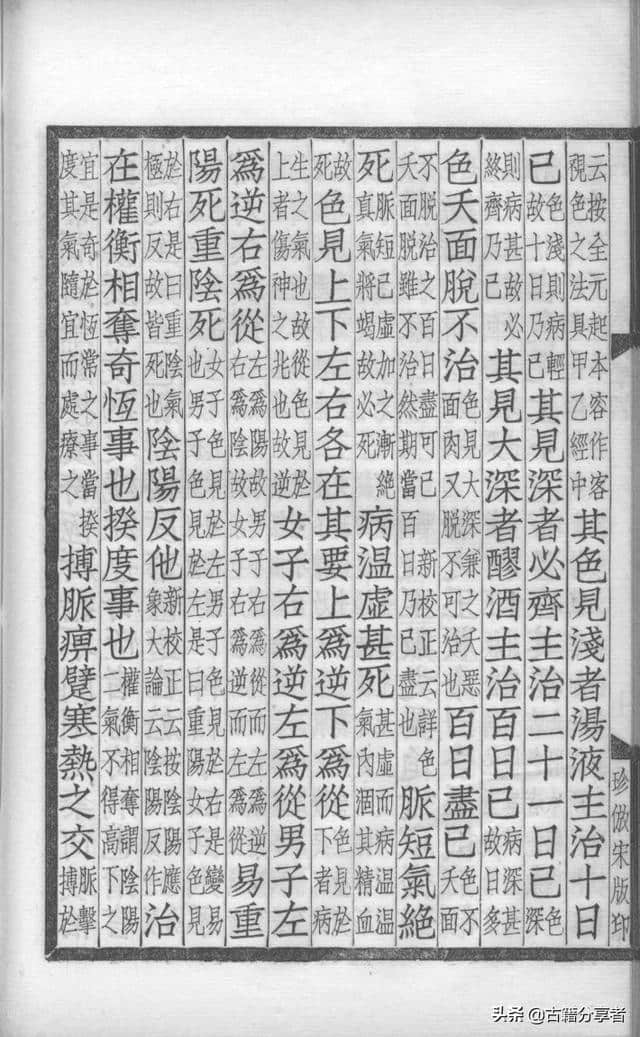 云按全元起本容作客
視色之法具甲乙經中
其色見淺者湯液主治十日
已
色淺則病輕
故十日乃已
其見深者必齊主治二十一日已
色
深
則病甚故必
終齊乃已
其見大深者醪酒主治百日已
病深甚
故日多
色夭面脫不治
色見大深兼之夭惡
面肉又脫不可治也
百日盡已
色不
夭面
不脫治之百日盡可已 新校正云詳色
夭面脫雖不治然期當百日乃已盡也
脈短氣絕
死
脈短已虛加之漸絕
真氣將竭故必死
病溫虛甚死
甚虛而病溫溫
氣內涸其精血
故
死
色見上下左右各在其要上爲逆下爲從
色見於
下者病
生之氣也故從色見於
上者傷神之兆也故逆
女子右爲逆左爲從男子左
爲逆右爲從
左爲陽故男子右爲從而左爲逆
右爲陰故女子右爲逆而左爲從
易重
陽死重陰死
女子色見於左男子色見於右是變易
也男子色見於左是曰重陽女子色見
於右是曰重陰氣
極則反故皆死也
陰陽反他
新校正云按陰陽應
象大論云陰陽反作
治
在權衡相奪奇恆事也揆度事也
權衡相奪謂陰陽
二氣不得高下之
宜是奇於恆常之事當揆
度其氣隨宜而處療之
搏脈痹躄寒熱之交
脈擊
搏於
珍倣宋版印
头条 @古籍分享者